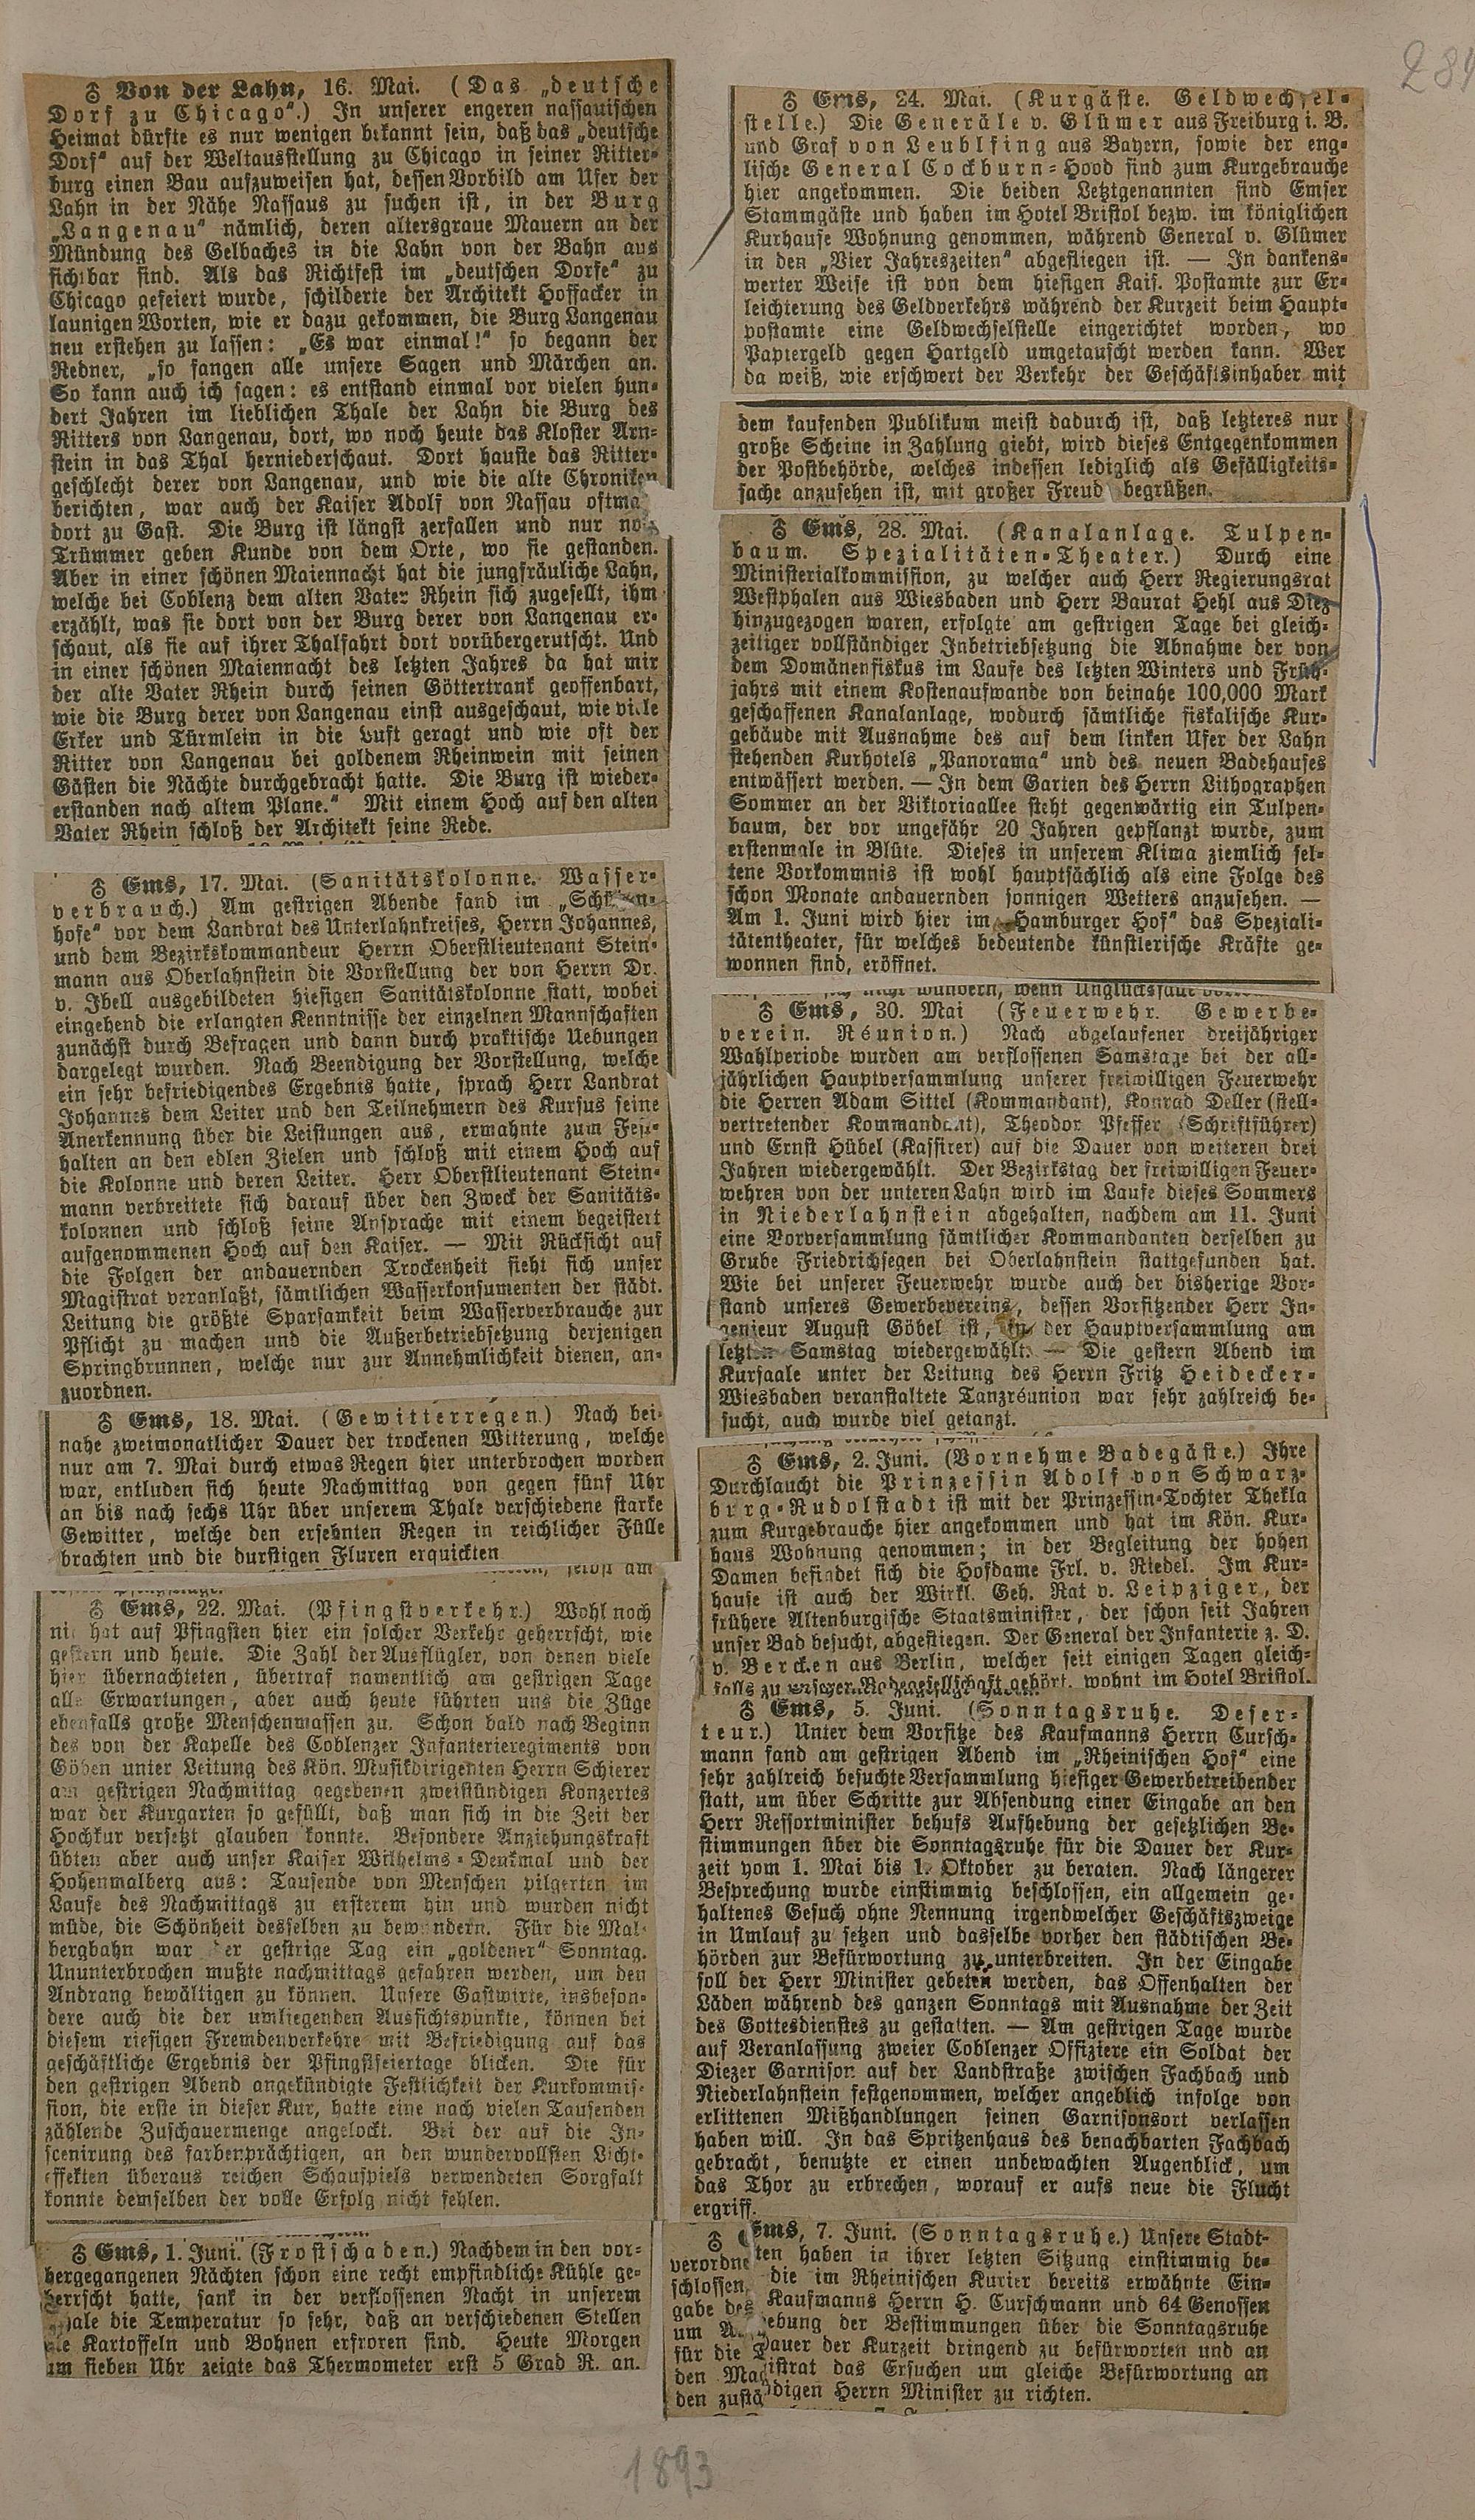 284
♁ Von der Lahn, 16. Mai. (Das „deutsche
Dorf zu Chicago“.) In unserer engeren nassauischen
Heimat dürfte es nur wenigen bekannt sein, daß das „deutsche
Dorf“ auf der Weltausstellung zu Chicago in seiner Ritter-
burg einen Bau aufzuweisen hat, dessen Vorbild am Ufer der
Lahn in der Nähe Nassaus zu suchen ist, in der Burg
„Langenau“ nämlich, deren altersgraue Mauern an der
Mündung des Gelbaches in die Lahn von der Bahn aus
sichtbar sind. Als das Richtfest im „deutschen Dorfe“ zu
Chicago gefeiert wurde, schilderte der Architekt Hoffacker in
launigen Worten, wie er dazu gekommen, die Burg Langenau
neu erstehen zu lassen: „Es war einmal!“ so begann der
Redner, „so fangen alle unsere Sagen und Märchen an.
So kann auch ich sagen: es entstand einmal vor vielen hun-
dert Jahren im lieblichen Thale der Lahn die Burg des
Ritters von Langenau, dort, wo noch heute das Kloster Arn-
stein in das Thal herniederschaut. Dort hauste das Ritter-
geschlecht derer von Langenau, und wie die alte Chroniken
berichten, war auch der Kaiser Adolf von Nassau oftma
dort zu Gast. Die Burg ist längst zerfallen und nur no
Trümmer geben Kunde von dem Orte, wo sie gestanden.
Aber in einer schönen Maiennacht hat die jungfräuliche Lahn,
welche bei Coblenz dem alten Vater Rhein sich zugesellt, ihm
erzählt, was sie dort von der Burg derer von Langenau er-
schaut, als sie auf ihrer Thalfahrt dort vorübergerutscht. Und
in einer schönen Maiennacht des letzten Jahres da hat mir
der alte Vater Rhein durch seinen Göttertrank geoffenbart,
wie die Burg derer von Langenau einst ausgeschaut, wie viele
Erker und Türmlein in die Luft geragt und wie oft der
Ritter von Langenau bei goldenem Rheinwein mit seinen
Gästen die Nächte durchgebracht hatte. Die Burg ist wieder-
erstanden nach altem Plane.“ Mit einem Hoch auf den alten
Vater Rhein schloß der Architekt seine Rede.
♁ Ems, 17. Mai. (Sanitätskolonne. Wasser-
verbrauch.) Am gestrigen Abende fand im „Schützen-
hofe“ vor dem Landrat des Unterlahnkreises, Herrn Johannes,
und dem Bezirkskommandeur Herrn Oberstlieutenant Stein-
mann aus Oberlahnstein die Vorstellung der von Herrn Dr.
v. Ibell ausgebildeten hiesigen Sanitätskolonne statt, wobei
eingehend die erlangten Kenntnisse der einzelnen Mannschaften
zunächst durch Befragen und dann durch praktische Uebungen
dargelegt wurden. Nach Beendigung der Vorstellung, welche
ein sehr befriedigendes Ergebnis hatte, sprach Herr Landrat
Johannes dem Leiter und den Teilnehmern des Kursus seine
Anerkennung über die Leistungen aus, ermahnte zum Fest-
halten an den edlen Zielen und schloß mit einem Hoch auf
die Kolonne und deren Leiter. Herr Oberstlieutenant Stein-
mann verbreitete sich darauf über den Zweck der Sanitäts-
kolonnen und schloß seine Ansprache mit einem begeistert
aufgenommenen Hoch auf den Kaiser. — Mit Rücksicht auf
die Folgen der andauernden Trockenheit sieht sich unser
Magistrat veranlaßt, sämtlichen Wasserkonsumenten der städt.
Leitung die größte Sparsamkeit beim Wasserverbrauche zur
Pflicht zu machen und die Außerbetriebsetzung derjenigen
Springbrunnen, welche nur zur Annehmlichkeit dienen, an-
zuordnen.
♁ Ems, 18. Mai. (Gewitterregen.) Nach bei-
nahe zweimonatlicher Dauer der trockenen Witterung, welche
nur am 7. Mai durch etwas Regen hier unterbrochen worden
war, entluden sich heute Nachmittag von gegen fünf Uhr
an bis nach sechs Uhr über unserem Thale verschiedene starke
Gewitter, welche den ersehnten Regen in reichlicher Fülle
brachten und die durstigen Fluren erquickten
selbst am
♁ Ems, 22. Mai. (Pfingstverkehr.) Wohl noch
nie hat auf Pfingsten hier ein solcher Verkehr geherrscht, wie
gestern und heute. Die Zahl der Ausflügler, von denen viele
hier übernachteten, übertraf namentlich am gestrigen Tage
alle Erwartungen, aber auch heute führten uns die Züge
ebenfalls große Menschenmassen zu. Schon bald nach Beginn
des von der Kapelle des Coblenzer Infanterieregiments von
Göben unter Leitung des Kön. Musikdirigenten Herrn Schierer
am gestrigen Nachmittag gegebenen zweistündigen Konzertes
war der Kurgarten so gefüllt, daß man sich in die Zeit der
Hochkur versetzt glauben konnte. Besondere Anziehungskraft
übten aber auch unser Kaiser Wilhelms-Denkmal und der
Hohenmalberg aus: Tausende von Menschen pilgerten im
Laufe des Nachmittags zu ersterem hin und wurden nicht
müde, die Schönheit desselben zu bewundern. Für die Mal-
bergbahn war der gestrige Tag ein „goldener“ Sonntag.
Ununterbrochen mußte nachmittags gefahren werden, um den
Andrang bewältigen zu können. Unsere Gastwirte, insbeson-
dere auch die der umliegenden Aussichtspunkte, können bei
diesem riesigen Fremdenverkehre mit Befriedigung auf das
geschäftliche Ergebnis der Pfingstfeiertage blicken. Die für
den gestrigen Abend angekündigte Festlichkeit der Kurkommis-
sion, die erste in dieser Kur, hatte eine nach vielen Tausenden
zählende Zuschauermenge angelockt. Bei der auf die In-
scenirung des farbenprächtigen, an den wundervollsten Licht-
effekten überaus reichen Schauspiels verwendeten Sorgfalt
konnte demselben der volle Erfolg nicht fehlen.
♁ Ems, 1. Juni. (Frostschaden.) Nachdem in den vor-
hergegangenen Nächten schon eine recht empfindliche Kühle ge-
herrscht hatte, sank in der verflossenen Nacht in unserem
Thale die Temperatur so sehr, daß an verschiedenen Stellen
die Kartoffeln und Bohnen erfroren sind. Heute Morgen
um sieben Uhr zeigte das Thermometer erst 5 Grad R. an.
♁ Ems, 24. Mai. (Kurgäste. Geldwechsel-
stelle.) Die Generäle v. Glümer aus Freiburg i. B.
und Graf von Leublfing aus Bayern, sowie der eng-
lische General Cockburn-Hood sind zum Kurgebrauche
hier angekommen. Die beiden Letztgenannten sind Emser
Stammgäste und haben im Hotel Bristol bezw. im königlichen
Kurhause Wohnung genommen, während General v. Glümer
in den „Vier Jahreszeiten“ abgestiegen ist. — In dankens-
werter Weise ist von dem hiesigen Kais. Postamte zur Er-
leichterung des Geldverkehrs während der Kurzeit beim Haupt-
postamte eine Geldwechselstelle eingerichtet worden, wo
Papiergeld gegen Hartgeld umgetauscht werden kann. Wer
da weiß, wie erschwert der Verkehr der Geschäftsinhaber mit
dem kaufenden Publikum meist dadurch ist, daß letzteres nur
große Scheine in Zahlung giebt, wird dieses Entgegenkommen
der Postbehörde, welches indessen lediglich als Gefälligkeits-
sache anzusehen ist, mit großer Freud begrüßen.
♁ Ems, 28. Mai. (Kanalanlage. Tulpen-
baum. Spezialitäten-Theater.) Durch eine
Ministerialkommission, zu welcher auch Herr Regierungsrat
Westphalen aus Wiesbaden und Herr Baurat Hehl aus Diez
hinzugezogen waren, erfolgte am gestrigen Tage bei gleich-
zeitiger vollständiger Inbetriebsetzung die Abnahme der von
dem Domänenfiskus im Laufe des letzten Winters und Früh-
jahrs mit einem Kostenaufwande von beinahe 100,000 Mark
geschaffenen Kanalanlage, wodurch sämtliche fiskalische Kur-
gebäude mit Ausnahme des auf dem linken Ufer der Lahn
stehenden Kurhotels „Panorama“ und des neuen Badehauses
entwässert werden. — In dem Garten des Herrn Lithographen
Sommer an der Viktoriaallee steht gegenwärtig ein Tulpen-
baum, der vor ungefähr 20 Jahren gepflanzt wurde, zum
erstenmale in Blüte. Dieses in unserem Klima ziemlich sel-
tene Vorkommnis ist wohl hauptsächlich als eine Folge des
schon Monate andauernden sonnigen Wetters anzusehen. —
Am 1. Juni wird hier im „Hamburger Hof“ das Speziali-
tätentheater, für welches bedeutende künstlerische Kräfte ge-
wonnen sind, eröffnet.
nicht wundern, wenn Unglücksfälle
♁ Ems, 30. Mai (Feuerwehr. Gewerbe-
verein. Réunion.) Nach abgelaufener dreijähriger
Wahlperiode wurden am verflossenen Samstage bei der all-
jährlichen Hauptversammlung unserer freiwilligen Feuerwehr
die Herren Adam Sittel (Kommandant), Konrad Deller (stell-
vertretender Kommandant), Theodor Pfeffer (Schriftführer)
und Ernst Hübel (Kassirer) auf die Dauer von weiteren drei
Jahren wiedergewählt. Der Bezirkstag der freiwilligen Feuer-
wehren von der unteren Lahn wird im Laufe dieses Sommers
in Niederlahnstein abgehalten, nachdem am 11. Juni
eine Vorversammlung sämtlicher Kommandanten derselben zu
Grube Friedrichsegen bei Oberlahnstein stattgefunden hat.
Wie bei unserer Feuerwehr wurde auch der bisherige Vor-
stand unseres Gewerbevereins, dessen Vorsitzender Herr In-
genieur August Göbel ist, in der Hauptversammlung am
letzten Samstag wiedergewählt. — Die gestern Abend im
Kursaale unter der Leitung des Herrn Fritz Heidecker-
Wiesbaden veranstaltete Tanzréunion war sehr zahlreich be-
sucht, auch wurde viel getanzt.
♁ Ems, 2. Juni. (Vornehme Badegäste.) Ihre
Durchlaucht die Prinzessin Adolf von Schwarz-
burg-Rudolstadt ist mit der Prinzessin-Tochter Thekla
zum Kurgebrauche hier angekommen und hat im Kön. Kur-
haus Wohnung genommen; in der Begleitung der hohen
Damen befindet sich die Hofdame Frl. v. Riedel. Im Kur-
hause ist auch der Wirkl. Geh. Rat v. Leipziger, der
frühere Altenburgische Staatsminister, der schon seit Jahren
unser Bad besucht, abgestiegen. Der General der Infanterie z. D.
v. Bercken aus Berlin, welcher seit einigen Tagen gleich-
falls zu unserer Badegesellschaft gehört, wohnt im Hotel Bristol.
♁ Ems, 5. Juni. (Sonntagsruhe. Deser-
teur.) Unter dem Vorsitze des Kaufmanns Herrn Cursch-
mann fand am gestrigen Abend im „Rheinischen Hof“ eine
sehr zahlreich besuchte Versammlung hiesiger Gewerbetreibender
statt, um über Schritte zur Absendung einer Eingabe an den
Herr Ressortminister behufs Aufhebung der gesetzlichen Be-
stimmungen über die Sonntagsruhe für die Dauer der Kur-
zeit vom 1. Mai bis 1. Oktober zu beraten. Nach längerer
Besprechung wurde einstimmig beschlossen, ein allgemein ge-
haltenes Gesuch ohne Nennung irgendwelcher Geschäftszweige
in Umlauf zu setzen und dasselbe vorher den städtischen Be-
hörden zur Befürwortung zu unterbreiten. In der Eingabe
soll der Herr Minister gebeten werden, das Offenhalten der
Läden während des ganzen Sonntags mit Ausnahme der Zeit
des Gottesdienstes zu gestatten. — Am gestrigen Tage wurde
auf Veranlassung zweier Coblenzer Offiziere ein Soldat der
Diezer Garnison auf der Landstraße zwischen Fachbach und
Niederlahnstein festgenommen, welcher angeblich infolge von
erlittenen Mißhandlungen seinen Garnisonsort verlassen
haben will. In das Spritzenhaus des benachbarten Fachbach
gebracht, benutzte er einen unbewachten Augenblick, um
das Thor zu erbrechen, worauf er aufs neue die Flucht
ergriff.
♁ Ems, 7. Juni. (Sonntagsruhe.) Unsere Stadt-
verordneten haben in ihrer letzten Sitzung einstimmig be-
schlossen, die im Rheinischen Kurier bereits erwähnte Ein-
gabe des Kaufmanns Herrn H. Curschmann und 64 Genossen
um A. ebung der Bestimmungen über die Sonntagsruhe
für die Dauer der Kurzeit dringend zu befürworten und an
den Magistrat das Ersuchen um gleiche Befürwortung an
den zustädigen Herrn Minister zu richten.
1893